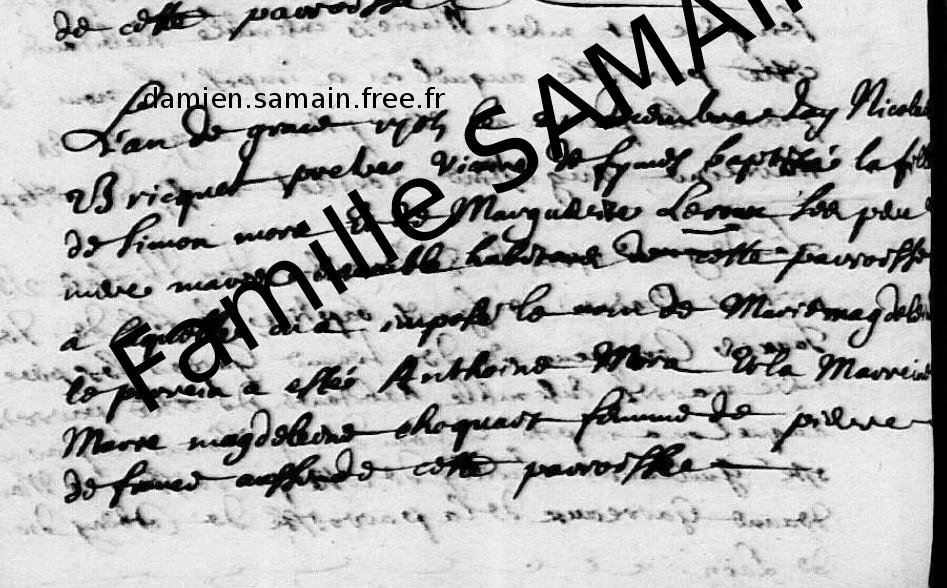 de cette parroisse
damien.samain.free.fr
Famille SAMAIN
L'an de grace le Jay Nicolas
Bricquet prebre vicaire de fymes baptisé la fille
de Simon mora Et de Marguerite Leroux Ses pere
mere mariés ensemble habitans de cette parroisse
à laquelle on a imposé le nom de Marie magdeleine
le parrein a esté Anthoine Mora Et la Marreine
Marie magdeleine choquart femme de pierre
de aussi de cette parroisse